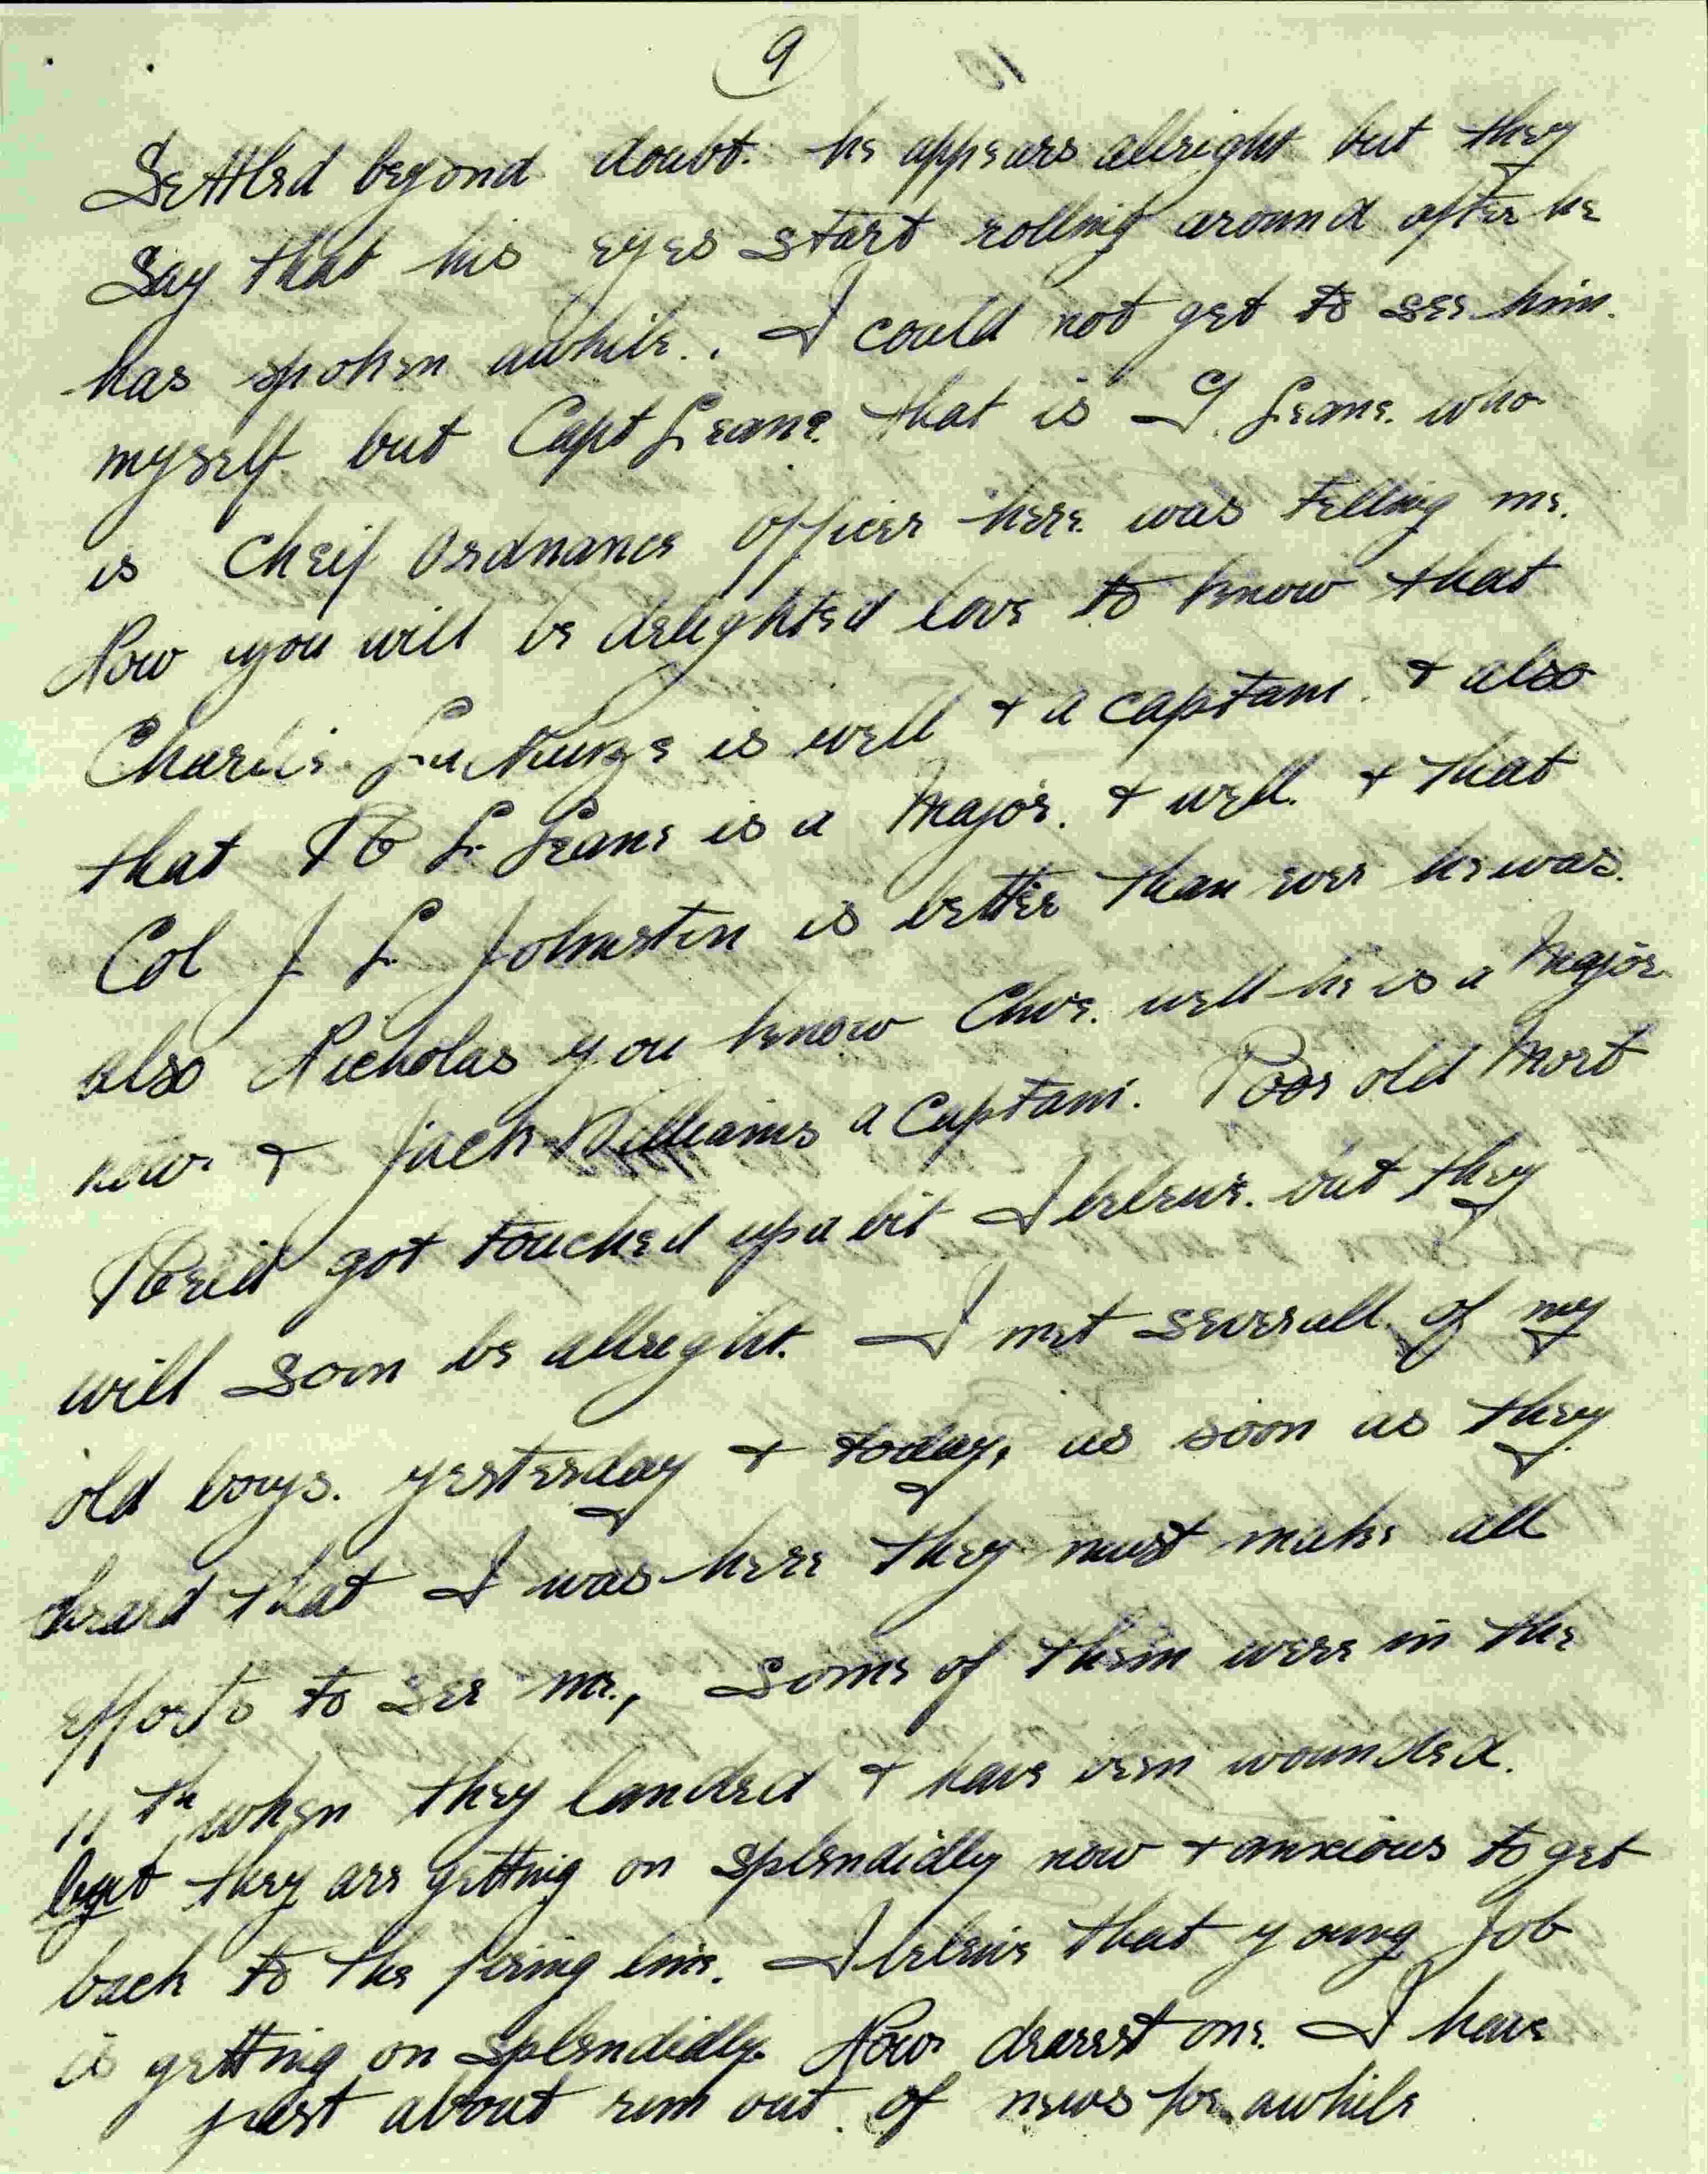 9
Settled beyond doubt. he appears allright but they
Say that his eyes start rolling around after he
has spoken awhile. . I could not get to see him.
myself but Capt Leane. that is J. Leane. who
is Cheif Ordnance Officer here was telling me.
Now you will be delighted love to know that
Charlie is well + a captain. + also
that R L Leane is a Major. + well. + that
Col J L Johnston is better than ever he was.
also Nicholas you know Clive. well he is a Major
now + Jack Williams a Captain. Poor old Mort
Reid got touched up a bit I beleive. but they
will soon be allright. I met severall of my
old boys. yesterday + today, as soon as they
heard that I was here they must make all
efforts to see me., Some of them were in the
11th when they landed + have been wounded.
but they are getting on splendidly now + anxious to get
back to the firing line. I beleive that young Job
is getting on splendidly. Now dearest one. I have
just about run out. of news for awhile